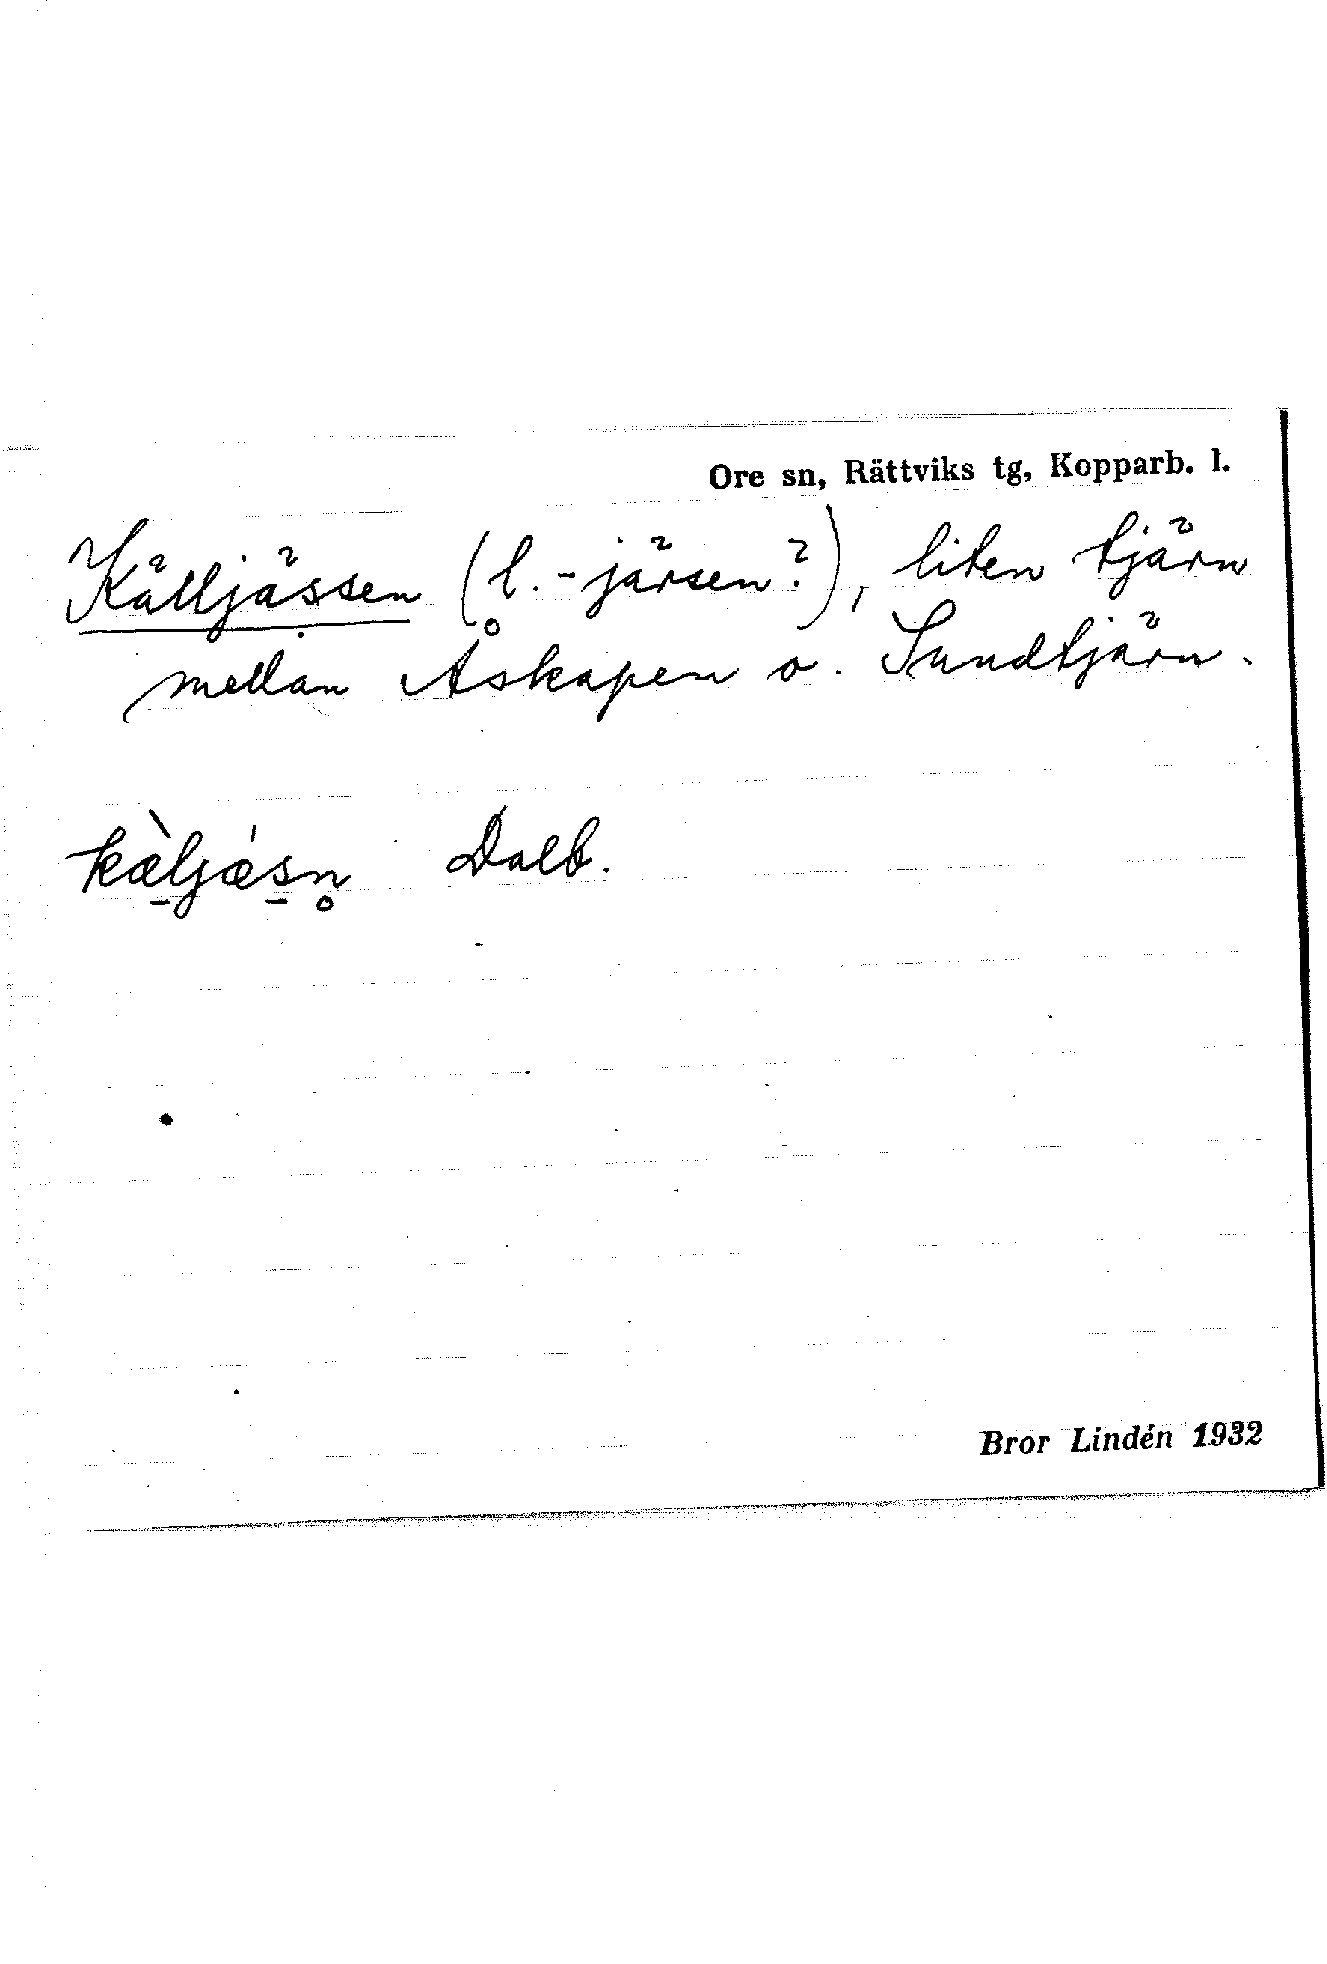 Ore sn, Rättviks tg, Kopparb. l.
Källjässen (l. -järsen?), liten tjärn
mellan Åskapen o. Sundtjärn.
kæ̀ljǽsn̥ Dalb.
Bror Lindén 1932